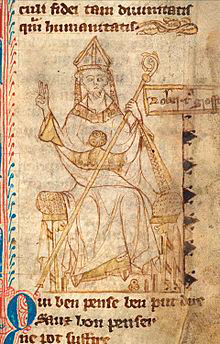 culi fidei tam diuinitatis
humanitatis.
Robert
Qui ben pense ben put dire
Sanz bon penser
ne pot suffire